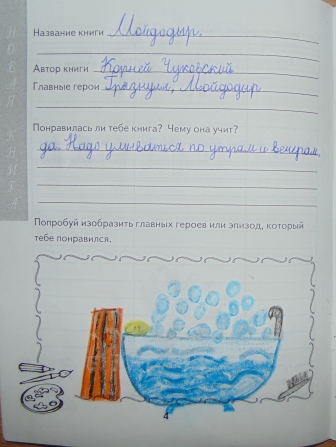 НОВАЯ КНИГА
Название книги Мойдодыр.
Автор книги Корней Чуковский
Главные герои Грязнуля, Мойдодыр
Понравилась ли тебе книга? Чему она учит?
да. Надо умываться по утрам и вечерам.
Попробуй изобразить главных героев или эпизод, который
тебе понравился.
4